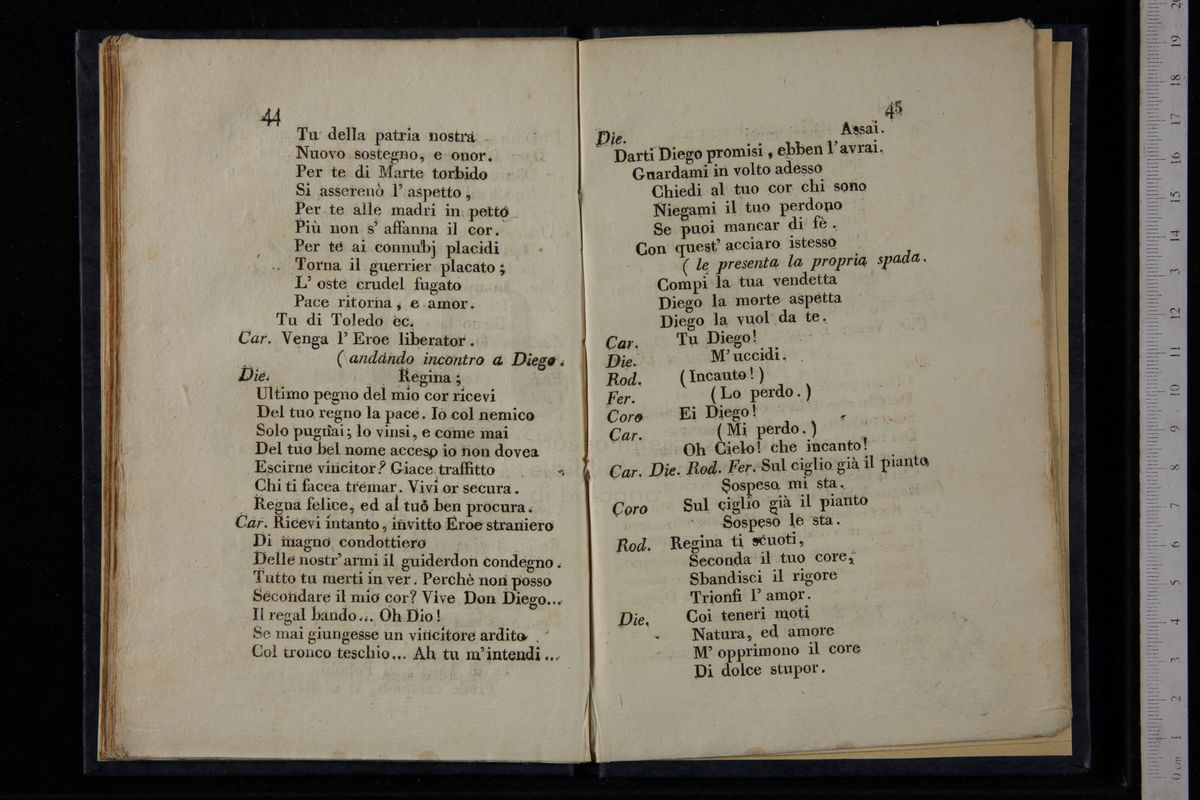 44
Tu della patria nostra
Nuovo sostegno, e onor.
Per te di Marte torbido
Si asserenò l' aspetto,
Per te alle madri in petto
Più non s' affanna il cor.
Per te ai connubj placidi
Torna il guerrier placato;
L' oste crudel fugato
Pace ritorna, e amor.
Tu di Toledo ec.
Car. Venga l' Eroe liberator.
(andando incontro a Diego.
Die. Regina;
Ultimo pegno del mio cor ricevi
Del tuo regno la pace. Io col nemico
Solo pugnai; lo vinsi, e come mai
Del tuo bel nome acceso io non dovea
Escirne vincitor? Giace traffitto
Chi ti facea tremar. Vivi or secura.
Regna felice, ed al tuo ben procura.
Car. Ricevi intanto, invitto Eroe straniero
Di magno condottiero
Delle nostr' armi il guiderdon condegno.
Tutto tu merti in ver. Perchè non posso
Secondare il mio cor? Vive Don Diego...
Il regal bando... Oh Dio!
Se mai giungesse un vincitore ardito
Col tronco teschio... Ah tu m'intendi...
45
Assai.
Die.
Darti Diego promisi, ebben l'avrai.
Guardami in volto adesso
Chiedi al tuo cor chi sono
Niegami il tuo perdono
Se puoi mancar di fè.
Con quest' acciaro istesso
(le presenta la propria spada.
Compi la tua vendetta
Diego la morte aspetta
Diego la vuol da te.
Car. Tu Diego!
Die. M'uccidi.
Rod. (Incauto!)
Fer. (Lo perdo.)
Coro Ei Diego!
Car. (Mi perdo.)
Oh Cielo! che incanto!
Car. Die. Rod. Fer. Sul ciglio già il pianto
Sospeso mi sta.
Coro Sul ciglio già il pianto
Sospeso le sta.
Rod. Regina ti scuoti,
Seconda il tuo core,
Sbandisci il rigore
Trionfi l' amor.
Die. Coi teneri moti
Natura, ed amore
M' opprimono il core
Di dolce stupor.